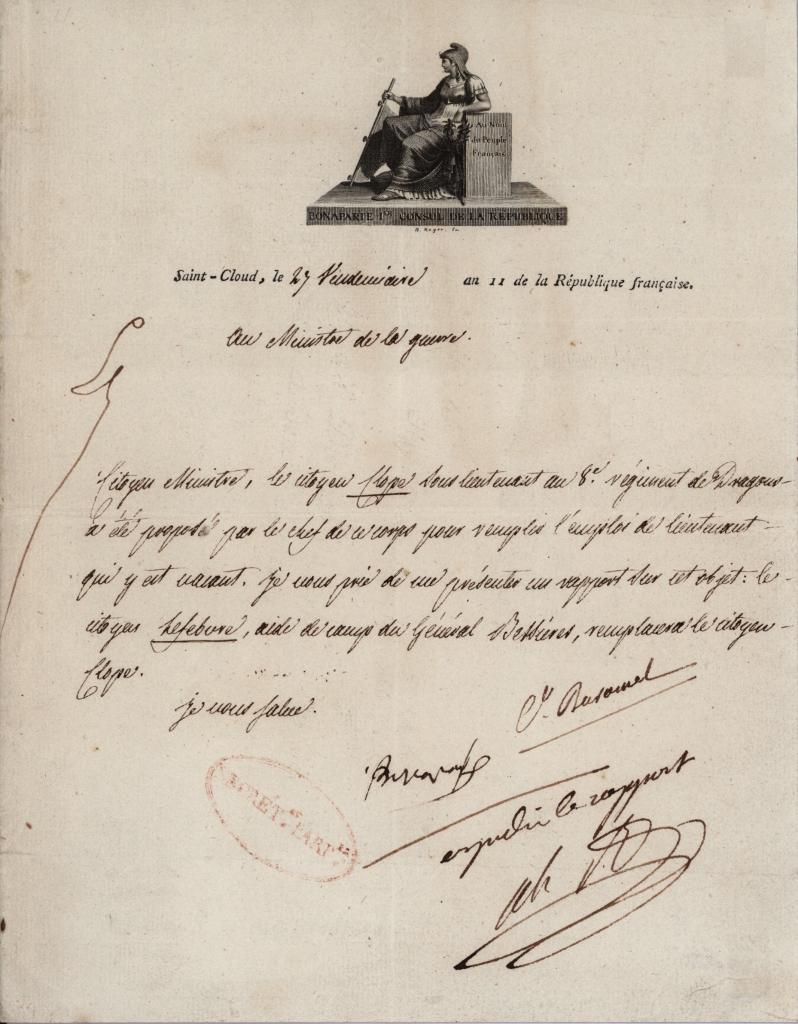 Au Nom
du Peuple
Français
BONAPARTE 1er CONSUL DE LA REPUBLIQUE
Saint-Cloud, le 27 Vendemiaire an 11 de la République française.
Au Ministre de la guerre.
Citoyen Ministre, le citoyen Clope Sous lieutenant au 8e. régiment de Dragons
a été proposé par le chef de ce corps pour remplir l'emploi de lieutenant
qui y est vacant. je vous prie de me présenter un rapport Sur cet objet: le
citoyen Lefebvre, aide de camp du Général Bessières, remplacera le citoyen
Clope.
je vous salue.
expédier le rapport